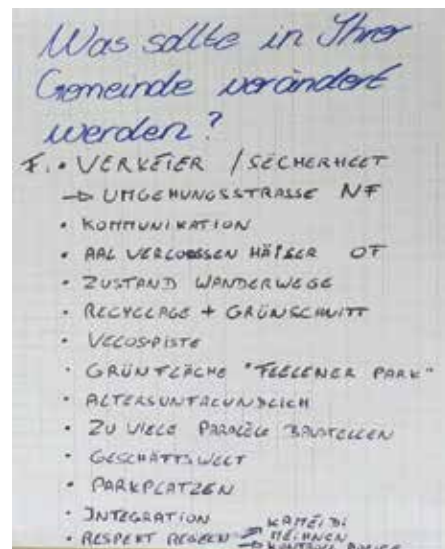 Was sollte in Ihrer
Gemeinde verändert
werden?
F. • VERKEIER / SECHERHEET
→ UMGEHUNGSSTRASSE NF
• KOMMUNIKATION
• AAL VERLOOSSEN HÄISER OT
• ZUSTAND WANDERWEGE
• RECYCLAGE + GRÜNSCHNITT
• VELOSPISTE
• GRÜNFLÄCHE "FEELENER PARK"
• ZU VIELE PARALELE BAUSTELLEN
• GESCHÄFTSWELT
• PARKPLATZEN
• INTEGRATION KAMEIDI
• RESPEKT REGELN → MEIHNEN
→